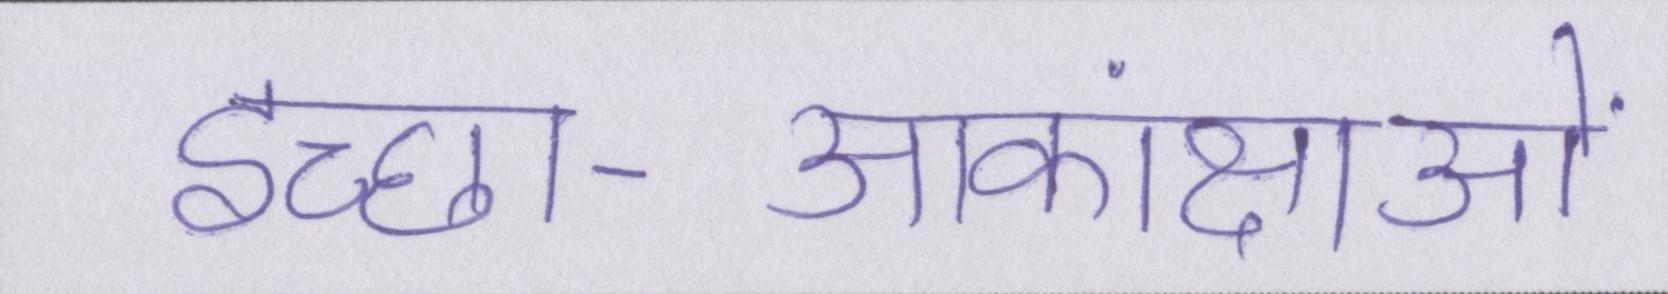 इच्छा- आकांक्षाओं